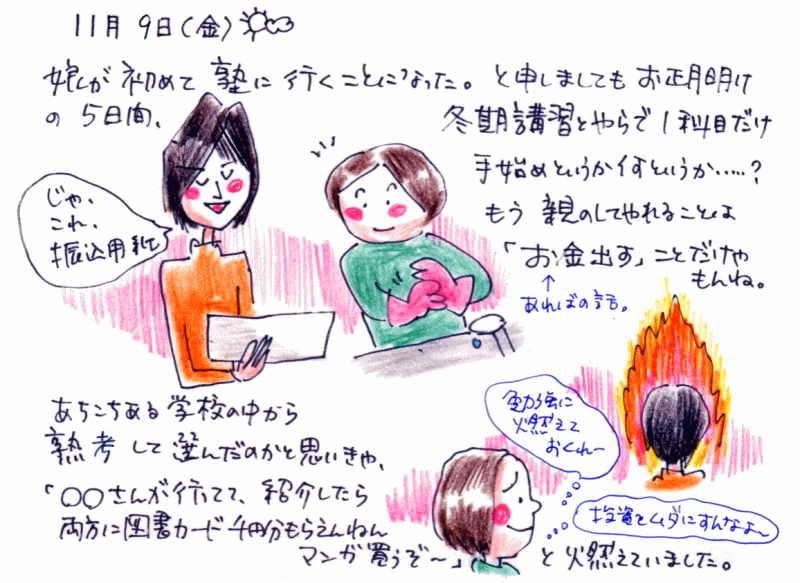 11月 9日(金)
娘が初めて塾に行くことになった。と申しましてもお正月明け
の5日間、
冬期講習とやらで1科目だけ
手始めというか何というか……?
もう親のしてやれることは
「お金出す」ことだけや
もんね。
↑
あればの話。
じゃ、
これ、
振込用紙
あちこちある学校の中から
熟考して選んだのかと思いきや、
「○○さんが行ってて、紹介したら
両方に図書カード千円分もらえんねん
マンガ買うぞ〜」と燃えていました。
勉強に
燃えて
おくれ〜
投資をムダにすんなよ〜